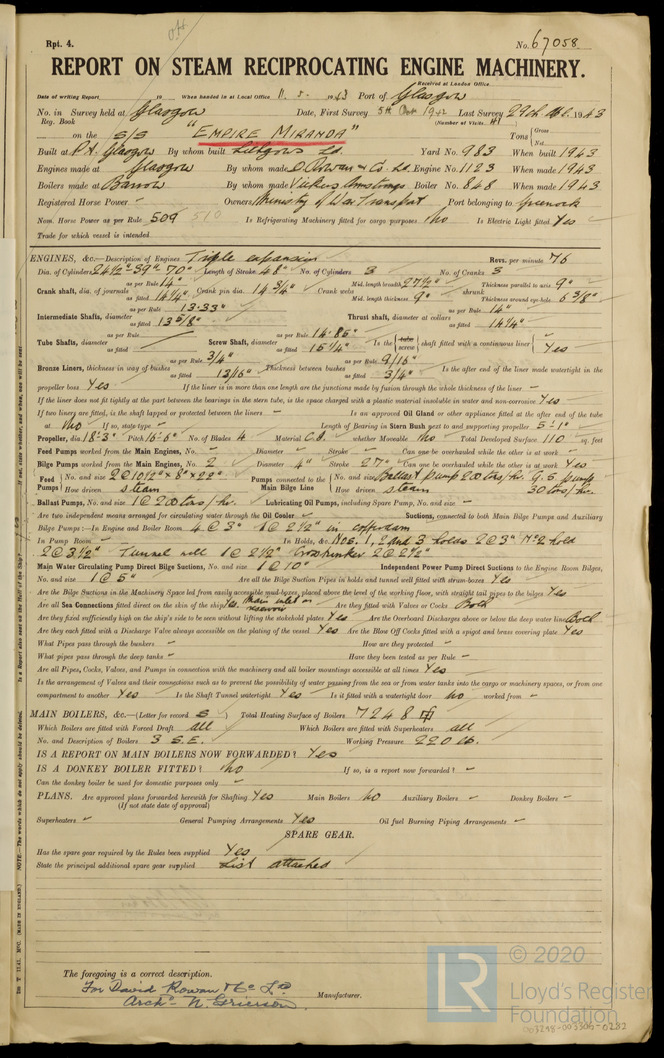 Rpt. 4.
No. 67058
REPORT ON STEAM RECIPROCATING ENGINE MACHINERY.
Received at London Office
Date of writing Report 19 When handed in at Local Office 11. 5. 1943 Port of Glasgow
No. in Survey held at Glasgow Date, First Survey 5th 1942 Last Survey 29th 1943
Reg. Book (Number of Visits, 41)
on the S/S "EMPIRE MIRANDA" Tons Gross Net
Built at Pt. Glasgow By whom built Lithgows Ld. Yard No. 983 When built 1943
Engines made at Glasgow By whom made D. Rowan & Co. Ld. Engine No. 1123 When made 1943
Boilers made at Barrow By whom made Vickers Armstrongs Boiler No. 848 When made 1943
Registered Horse Power - Owners Ministry of War Transport Port belonging to Greenock
Nom. Horse Power as per Rule 509 510 Is Refrigerating Machinery fitted for cargo purposes No Is Electric Light fitted Yes
Trade for which vessel is intended.
ENGINES, &c.—Description of Engines Triple expansion Revs. per minute 76
Dia. of Cylinders 24½"-39"-70" Length of Stroke 48" No. of Cylinders 3 No. of Cranks 3
Crank shaft, dia. of journals as per Rule 14" as fitted 14¼" Crank pin dia. 14¾" Crank webs Mid. length breadth 27½" Mid. length thickness 9" shrunk Thickness parallel to axis 9" Thickness around eye-hole 6⅜"
Intermediate Shafts, diameter as per Rule 13.33" as fitted 13⅝" Thrust shaft, diameter at collars as per Rule 14" as fitted 14¼"
Tube Shafts, diameter as per Rule as fitted Screw Shaft, diameter as per Rule 14.85" as fitted 15¼" Is the tube screw shaft fitted with a continuous liner Yes
Bronze Liners, thickness in way of bushes as per Rule 3/4" as fitted 13/16" Thickness between bushes as per Rule 9/16" as fitted 3/4" Is the after end of the liner made watertight in the
propeller boss Yes If the liner is in more than one length are the junctions made by fusion through the whole thickness of the liner -
If the liner does not fit tightly at the part between the bearings in the stern tube, is the space charged with a plastic material insoluble in water and non-corrosive Yes
If two liners are fitted, is the shaft lapped or protected between the liners - Is an approved Oil Gland or other appliance fitted at the after end of the tube
shaft No If so, state type - Length of Bearing in Stern Bush next to and supporting propeller 5'-1"
Propeller, dia. 18'-3" Pitch 16'-6" No. of Blades 4 Material C.I. whether Moveable No Total Developed Surface 110 sq. feet
Feed Pumps worked from the Main Engines, No. - Diameter - Stroke - Can one be overhauled while the other is at work -
Bilge Pumps worked from the Main Engines, No. 2 Diameter 4" Stroke 27" Can one be overhauled while the other is at work Yes
Feed Pumps No. and size 2@10½"×8"×22" Pumps connected to the Main Bilge Line No. and size Ballast pump 200 tons/hr. G.S pump
How driven steam How driven steam 30 tons/hr.
Ballast Pumps, No. and size 1@200 tons/hr. Lubricating Oil Pumps, including Spare Pump, No. and size -
Are two independent means arranged for circulating water through the Oil Cooler - Suctions, connected to both Main Bilge Pumps and Auxiliary
Bilge Pumps:—In Engine and Boiler Room 4@3" 1@2½" in cofferdam
In Pump Room - In Holds, &c. Nos. 1, 2 and 3 holds 2@3" No 2 hold
2@3½" Tunnel well 1@2½" Crossbunker 2@2½"
Main Water Circulating Pump Direct Bilge Suctions, No. and size 1@10" Independent Power Pump Direct Suctions to the Engine Room Bilges,
No. and size 1@5" Are all the Bilge Suction Pipes in holds and tunnel well fitted with strum-boxes Yes
Are the Bilge Suctions in the Machinery Space led from easily accessible mud-boxes, placed above the level of the working floor, with straight tail pipes to the bilges Yes
Are all Sea Connections fitted direct on the skin of the ship Yes. Main inlet on reservoir Are they fitted with Valves or Cocks Both
Are they fixed sufficiently high on the ship's side to be seen without lifting the stokehold plates Yes Are the Overboard Discharges above or below the deep water line Both
Are they each fitted with a Discharge Valve always accessible on the plating of the vessel Yes Are the Blow Off Cocks fitted with a spigot and brass covering plate Yes
What Pipes pass through the bunkers - How are they protected -
What pipes pass through the deep tanks - Have they been tested as per Rule -
Are all Pipes, Cocks, Valves, and Pumps in connection with the machinery and all boiler mountings accessible at all times Yes
Is the arrangement of Valves and their connections such as to prevent the possibility of water passing from the sea or from water tanks into the cargo or machinery spaces, or from one
compartment to another Yes Is the Shaft Tunnel watertight Yes Is it fitted with a watertight door No worked from -
MAIN BOILERS, &c.—(Letter for record S) Total Heating Surface of Boilers 7248
Which Boilers are fitted with Forced Draft all Which Boilers are fitted with Superheaters all
No. and Description of Boilers 3 S.E. Working Pressure 220 lb.
IS A REPORT ON MAIN BOILERS NOW FORWARDED? Yes
IS A DONKEY BOILER FITTED? No If so, is a report now forwarded? -
Can the donkey boiler be used for domestic purposes only -
PLANS. Are approved plans forwarded herewith for Shafting Yes Main Boilers No Auxiliary Boilers - Donkey Boilers -
(If not state date of approval)
Superheaters - General Pumping Arrangements Yes Oil fuel Burning Piping Arrangements -
SPARE GEAR.
Has the spare gear required by the Rules been supplied Yes
State the principal additional spare gear supplied List attached
The foregoing is a correct description.
For David Rowan & Co Ld
Archd N. Grierson Manufacturer.
© 2020
LR
Lloyd's Register
Foundation
003298-003306-0232